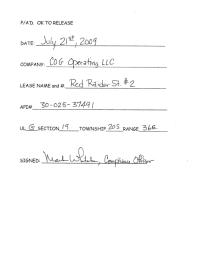 P/A'D. OK TO RELEASE
DATE: July 21st, 2009
COMPANY: COG Operating LLC
LEASE NAME and #: Red Raider St. #2
API# 30-025-37491
UL G SECTION 19 TOWNSHIP 20S RANGE 36E
SIGNED: Compliance Officer